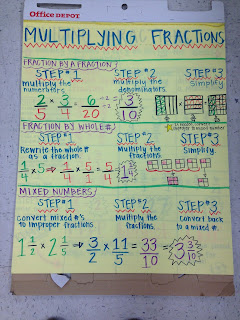 Office DEPOT
MULTIPLYING FRACTIONS
FRACTION BY A FRACTION
STEP #1 STEP #2 STEP #3
multiply the numerators. multiply the denominators. Simplify
2/5 × 3/4 = 6/20 -2 -2 3/10
FRACTION BY WHOLE #
STEP #1 STEP #2 STEP #3
Rewrite the whole # as a fraction. Multiply the fractions. Simplify.
1/4 × 5 → 1/4 × 5/1 = 5/4 = 1 1/4
MIXED NUMBERS
STEP #1 STEP #2 STEP #3
Convert mixed #'s to improper fractions Multiply the fractions. Convert back to a mixed #.
1 1/2 × 2 1/5 → 3/2 × 11/5 = 33/10 = 3 3/10